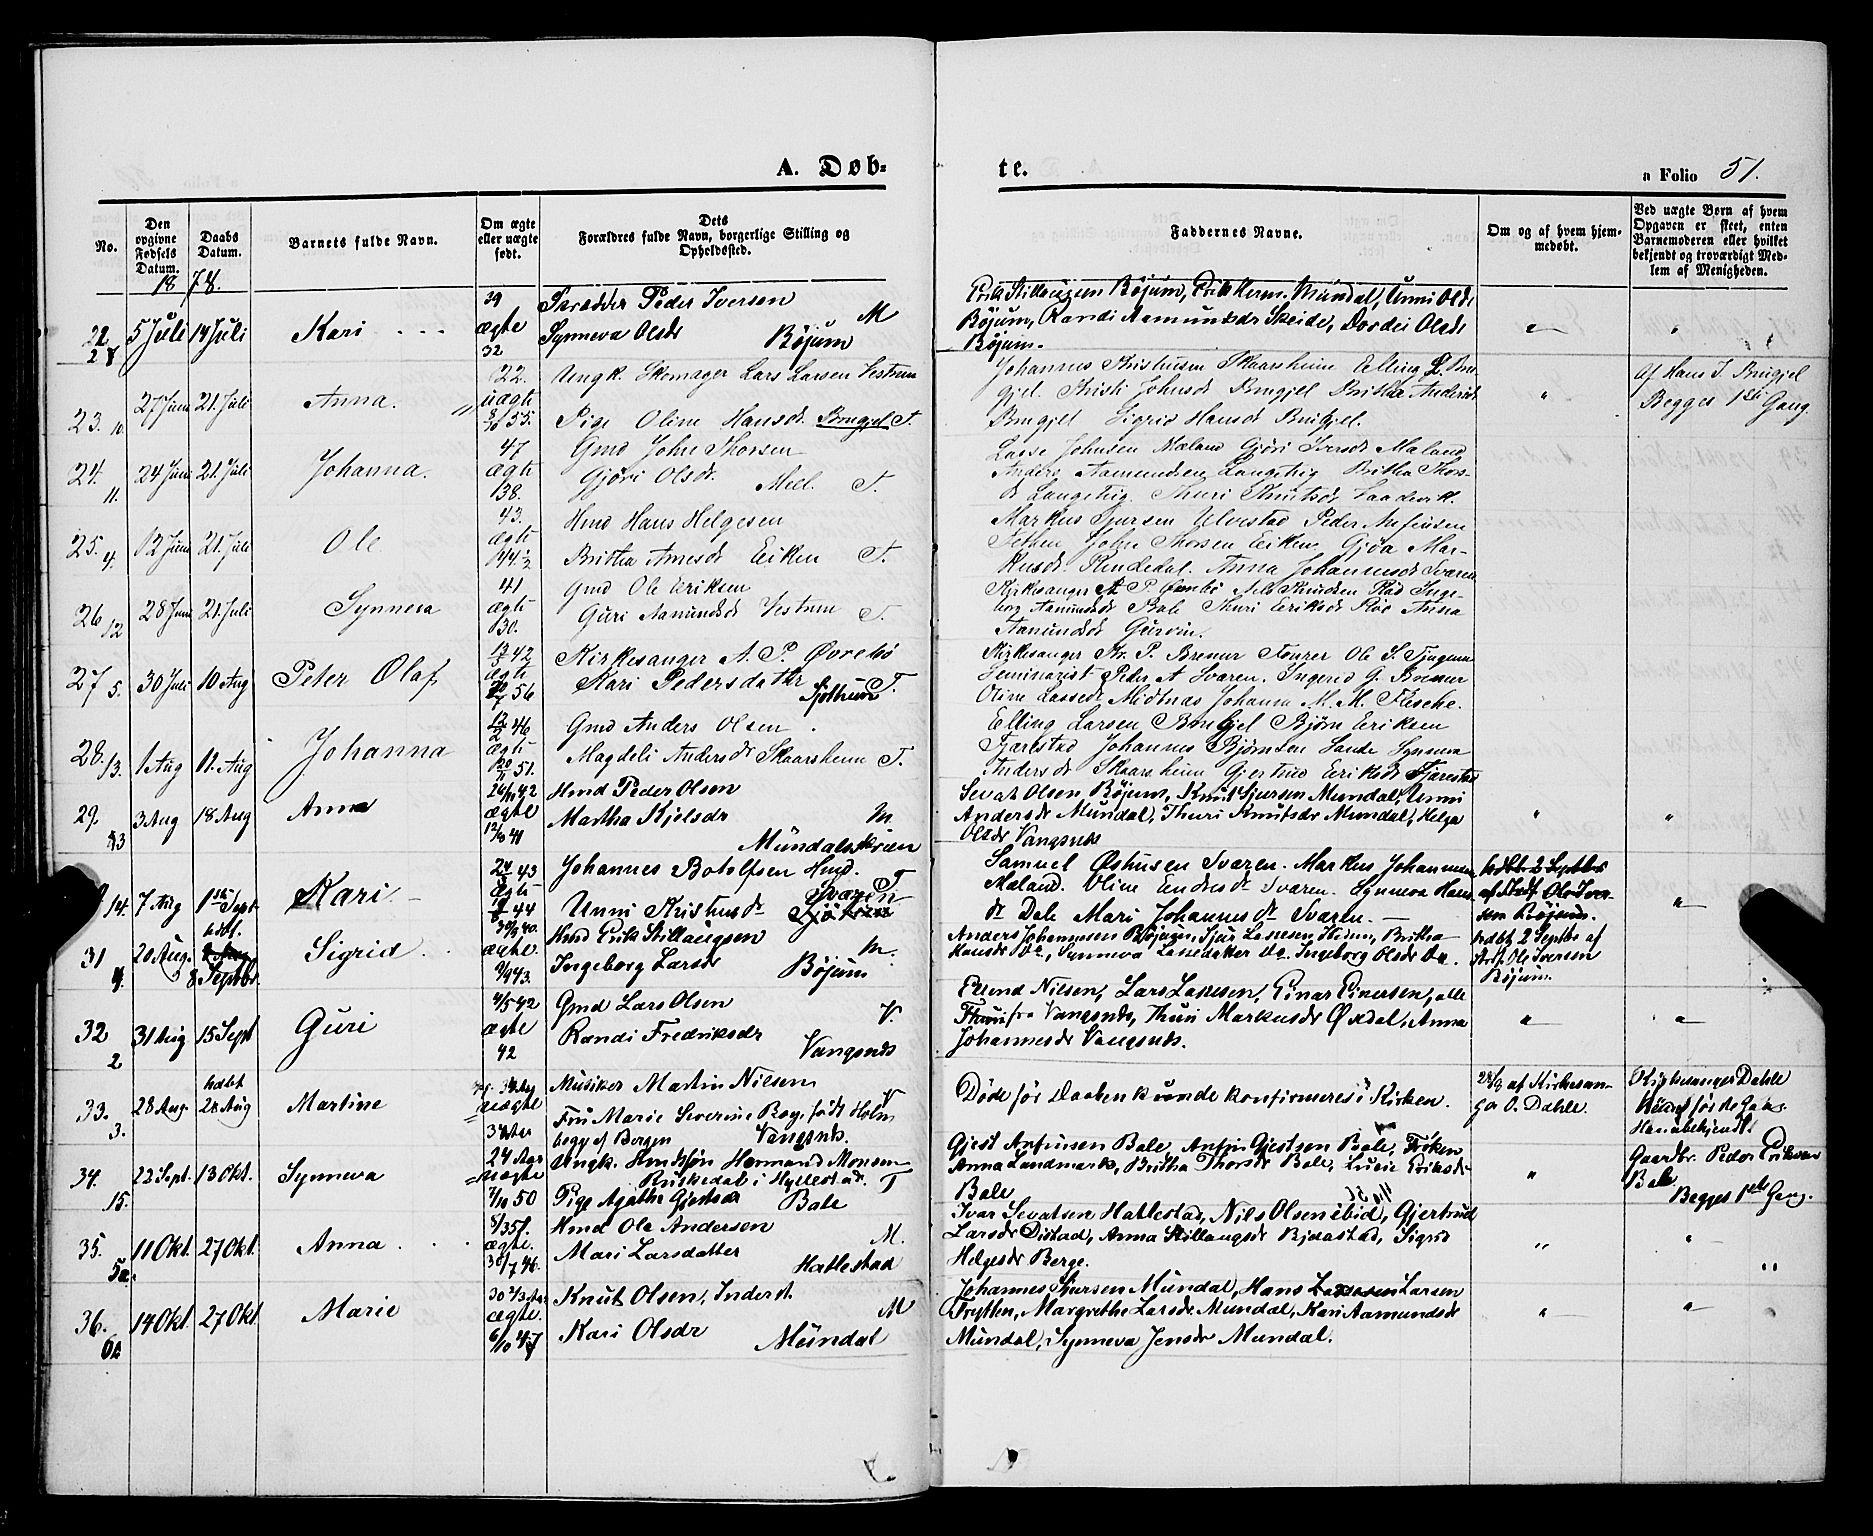 A. Døb-
te.
a Folio 51.
No.
Den opgivne Fødsels Datum.
Daabs Datum.
Barnets fulde Navn.
Om ægte eller uægte født.
Dets Forældres fulde Navn, borgerlige Stilling og Opholdssted.
Faddernes Navne.
Om og af hvem hjemmedøbt.
Ved uægte Børn af hvem Opgaven er skeet, enten Barnemoderen eller hvilket bekjendt og troværdigt Medlem af Menigheden.
1878.
22 5 Juli 14 Juli Kari
39 ægte 32
Skrædder Peder Iversen M
Synneva Olsdr Bøjum
Erik Stillaugsen Bøjum, Erik Herm. Mundal, Unni Olsdr
Bøjum, Randi Aamundsdr Skeide, Dordei Olsdr
Bøjum.
23. 10. 27 Juni 21. Juli Anna.
22. uægte 55.
Ungk. Skomager Lars Larsen Vestrum
Pige Oline Hansdr. Brugjel T.
Johannes Kristensen Skaarsheim Elling L. Bru-
gjel. Kristi Johnsdr Brugjel Britha Andersdr
Brugjel Sigrid Hansdr Brugjel.
Af Hans J. Brugjel
Begges 1ste Gang.
24. 11. 24 Juni 21. Juli Johanna.
47 ægte 38.
Gmd John Thorsen
Gjöri Olsdr. Mel. T.
Lasse Johnsen Mæland Gjöri Iversdr Mæland
Anders Aamundsen Langeteig Britha Thors-
dr Langeteig. Thuri Knutsdr
25. 4. 12 Juni 21. Juli Ole
43. ægte 44 1/2
Hmd Hans Helgesen
Britha Arnesdr Eiken T.
Markus Sjursen Ulvestad Peder Anfinsen
John Thorsen Eiken Gjöa Mar-
kusdr. Anna Johannesdr Sværen
26 12 28 Juni 21. Juli Synneva
41 ægte 30.
Gmd Ole Eriksen
Guri Aamundsdr Vestrum T.
Kirkesanger A. P. Øvrebö Knudsen Inge-
borg Aamundsdr Bale Thuri Eriksdr Anna
Aamundsdr Gurvin.
27 5. 30 Juli 10 Aug Peter Olaf
42 ægte 56
Kirkesanger A. P. Øvrebö
Kari Pedersdatter Fjøtkum T.
Kirkesanger Kr. P. Bremer Ole S. Tjugum
Seminarist Peder A Sværen. Ingerid G. Bremer
Oline Lassedr Midtnæs Johanna M. M. Flesche.
28. 13. 1 Aug 11. Aug Johanna
46 ægte 51.
Gmd Anders Olsen
Magdeli Andersdr Skaarsheim T.
Elling Larsen Brugjel Bjørn Eriksen
Johannes Bjørnsen Sande Synneva
Andersdr Skaarsheim Gjertrud Eriksdr
29. 3 Aug 18 Aug Anna
24/11 42 ægte 12/10 41
Hmd Peder Olsen
Martha Kjelsdr M.
Mundalsskreen
Sevat Olsen Bøjum, Knut Sjursen Mundal, Unni
Andersdr Mundal, Thuri Knutsdr Mundal, Helga
Olsdr Vangsnæs
14. 7 Aug 1ste Sept. Kari
43 ægte 44
Johannes Botolfsen Hmd. T
Unni Kristensdr Sværen
Samuel Øshusen Sværen. Markus Johannesen
Mæland. Oline Endresdr Sværen. Synneva Hans-
dr Dale Mari Johannesdr Sværen.
hdbt 2 Septbr
af Stud. Ole Iver-
sen Bøjum.
31 20 Aug. hdbt. 8 Septbr. Sigrid
30/9 40. ægte. 9/9 43.
Hmd Erik Stillaugsen M.
Ingeborg Larsdr Bøjum
Anders Johannesen Bøjum, Sjur Lassesen, Britha
Hansdr Do, Synneva Lassedatter Do. Ingeborg Olsdr Do.
hdbt 2 Septbr af
Stud. Ole Iversen
Bøjum.
32 2 31 Aug 15 Sept Guri
4/5 42 ægte 42
Gmd Lars Olsen V.
Randi Fredriksdr Vangsnæs
Erlend Nilsen, Lars Lassesen, Einar Einersen, alle
fra Vangsnæs, Thuri Markusdr Øxdal, Anna
Johannesdr Vangsnæs.
33. 3. 28 Aug. hdbt 28 Aug Martine
uægte
Musiker Martin Nilsen V
Fru Marie Severine Boy, født Holm
begge af Bergen Vangsnæs.
Døde før Daaben kunde konfirmeres i Kirken.
28/8 af Kirkesan-
ger O. Dahle.
Kirkesanger Dahle
34. 15. 22 Sept. 13 Okt. Synneva
24 Aar uægte 7/10 50
Ungk. Hmdssøn Hermand Monsen
Ruskedal i Hyllestad. T
Pige Agathe Gjestsdr Bale
Gjest Anfinsen Bale, Anfin Gjestsen Bale, Frøken
Anna Landmark, Britha Thorsdr Bale, Lucie Eriksdr
Bale
Gaardbr. Peder Eriksen
Bale
Begges 1ste Gang.
35. 5a. 11 Okt. 27 Okt. Anna
8/3 51. ægte. 30/7 46.
Hmd Ole Andersen M.
Mari Larsdatter Hatlestad
Ivar Sevatsen Hatlestad, Nils Olsen ibid, Gjertrud
Larsdr Distad, Anna Stillaugsdr Bjåstad, Sigrid
Helgesdr Berge.
36. 6a 14 Okt. 27 Okt Marie
30 2/3 Aar ægte. 6/10 47
Knut Olsen, Inderst. M
Kari Olsdr Mundal
Johannes Sjursen Mundal, Hans Larsen
Frytten, Margrethe Larsdr. Mundal, Kari Aamundsdr
Mundal, Synneva Jensdr Mundal.